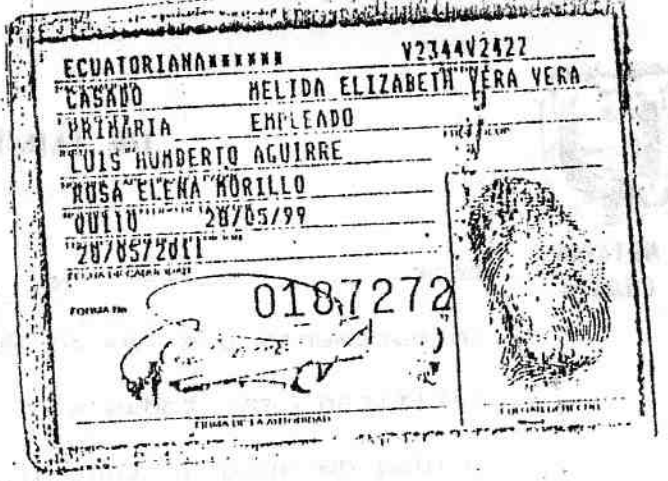 ECUATORIANA****** V2344V2422
CASADO MELIDA ELIZABETH VERA VERA
PRIMARIA EMPLEADO
LUIS HUMBERTO AGUIRRE
ROSA ELENA MORILLO
QUITO 28/05/99
28/05/2011
FECHA DE CADUCIDAD
FORMA No 0187272
FIRMA DE LA AUTORIDAD